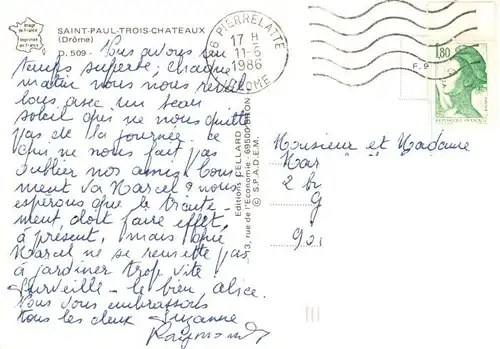 Image de France
Imprimée en France
SAINT-PAUL-TROIS-CHATEAUX
(Drôme)
D. 509 -
Nous avons un
temps superbe; chaque
matin nous nous réveil
lons avec un beau
soleil qui ne nous quitte
pas de la journée. Ce
qui ne nous fait pas
oublier nos amis. Com
ment va Marcel? nous
espérons que le traite-
ment doit faire effet,
à présent, mais que
Marcel ne se remette pas
à jardiner trop vite!
Surveille-le bien Alice.
Nous vous embrassons
tous les deux Suzanne
Raymond
Editions CELLARD
3, rue de l'Economie - 69500 BRON
© S.P.A.D.E.M.
26 PIERRELATTE
17 H
11-6
1986
DROME
F. 9
1,80
REPUBLIQUE FRANCAISE
Monsieur et Madame
Mar
2 bis
G
90